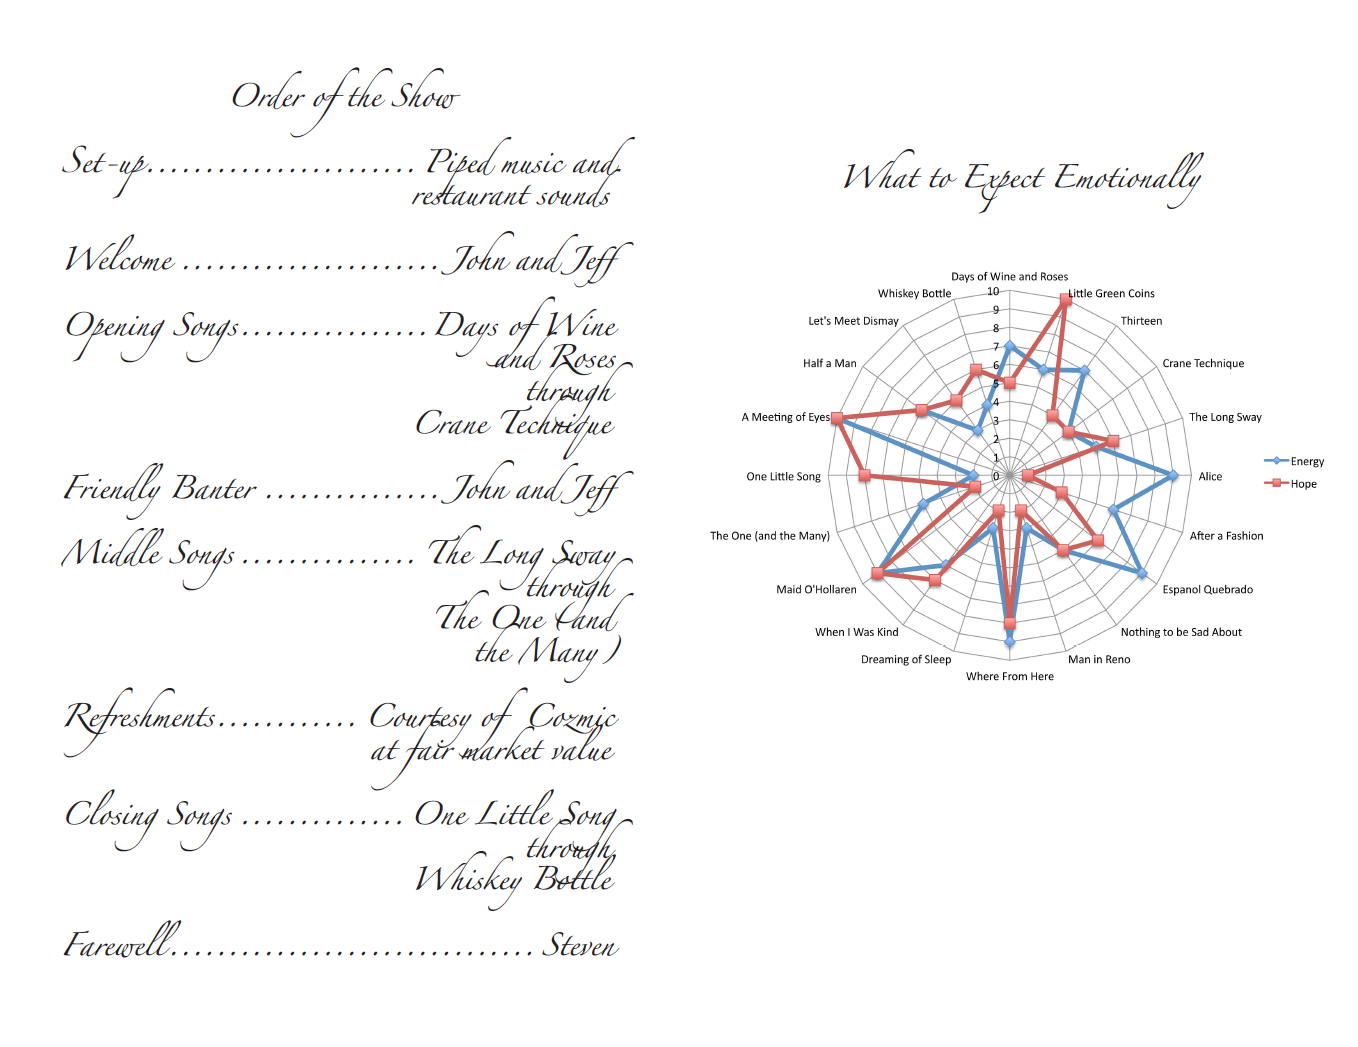 Order of the Show
Set-up....................... Piped music and
restaurant sounds
Welcome ...................... John and Jeff
Opening Songs................ Days of Wine
and Roses
through
Crane Technique
Friendly Banter ............... John and Jeff
Middle Songs ............... The Long Sway
through
The One (and
the Many)
Refreshments............ Courtesy of Cozmic
at fair market value
Closing Songs .............. One Little Song
through
Whiskey Bottle
Farewell............................... Steven
What to Expect Emotionally
Days of Wine and Roses
Little Green Coins
Thirteen
Crane Technique
The Long Sway
Alice
After a Fashion
Espanol Quebrado
Nothing to be Sad About
Man in Reno
Where From Here
Dreaming of Sleep
When I Was Kind
Maid O'Hollaren
The One (and the Many)
One Little Song
A Meeting of Eyes
Half a Man
Let's Meet Dismay
Whiskey Bottle
10
9
8
7
6
5
4
3
2
1
0
Energy
Hope